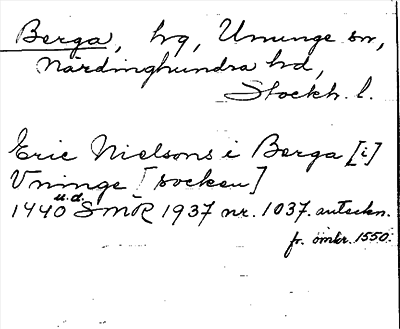 Berga, hg, Ununge sn,
Närdinghundra hd,
Stockh. l.
Eric Nielsons i Berga [i]
Vninge [socken]
1440 u.d. SMR 1937 nr. 1037. anteckn.
fr. omkr. 1550.